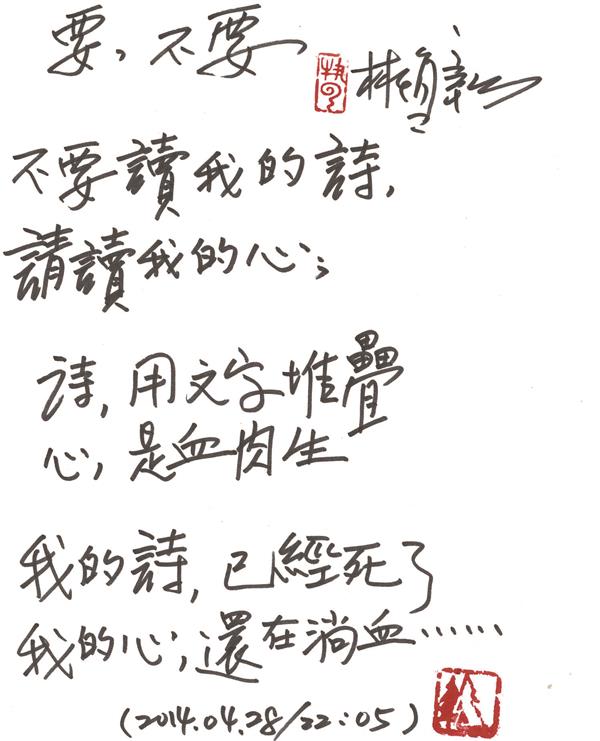 要,不要
林煥彰
不要讀我的詩,
請讀我的心;
詩,用文字堆疊
心,是血肉生
我的詩,已經死了
我的心,還在淌血……
(2014.04.28/22:05)